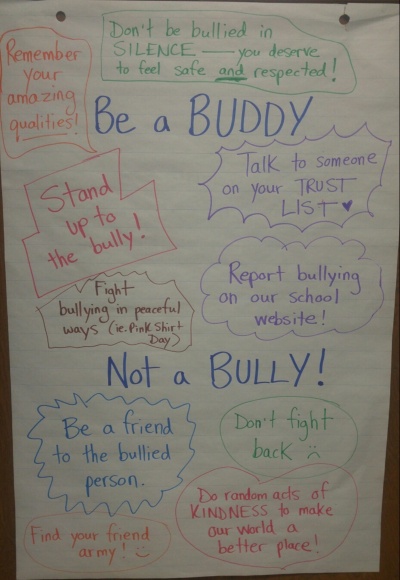 Don't be bullied in
SILENCE — you deserve
to feel safe and respected!
Remember
your
amazing
qualities!
Be a BUDDY
Talk to someone
on your TRUST
LIST ♥
Stand
up to
the bully!
Report bullying
on our school
website!
Fight
bullying in peaceful
ways (ie. Pink Shirt
Day)
Not a BULLY!
Be a friend
to the bullied
person.
Don't fight
back ☹
Do random acts of
KINDNESS to make
our world a
better place!
Find your friend
army! ☺